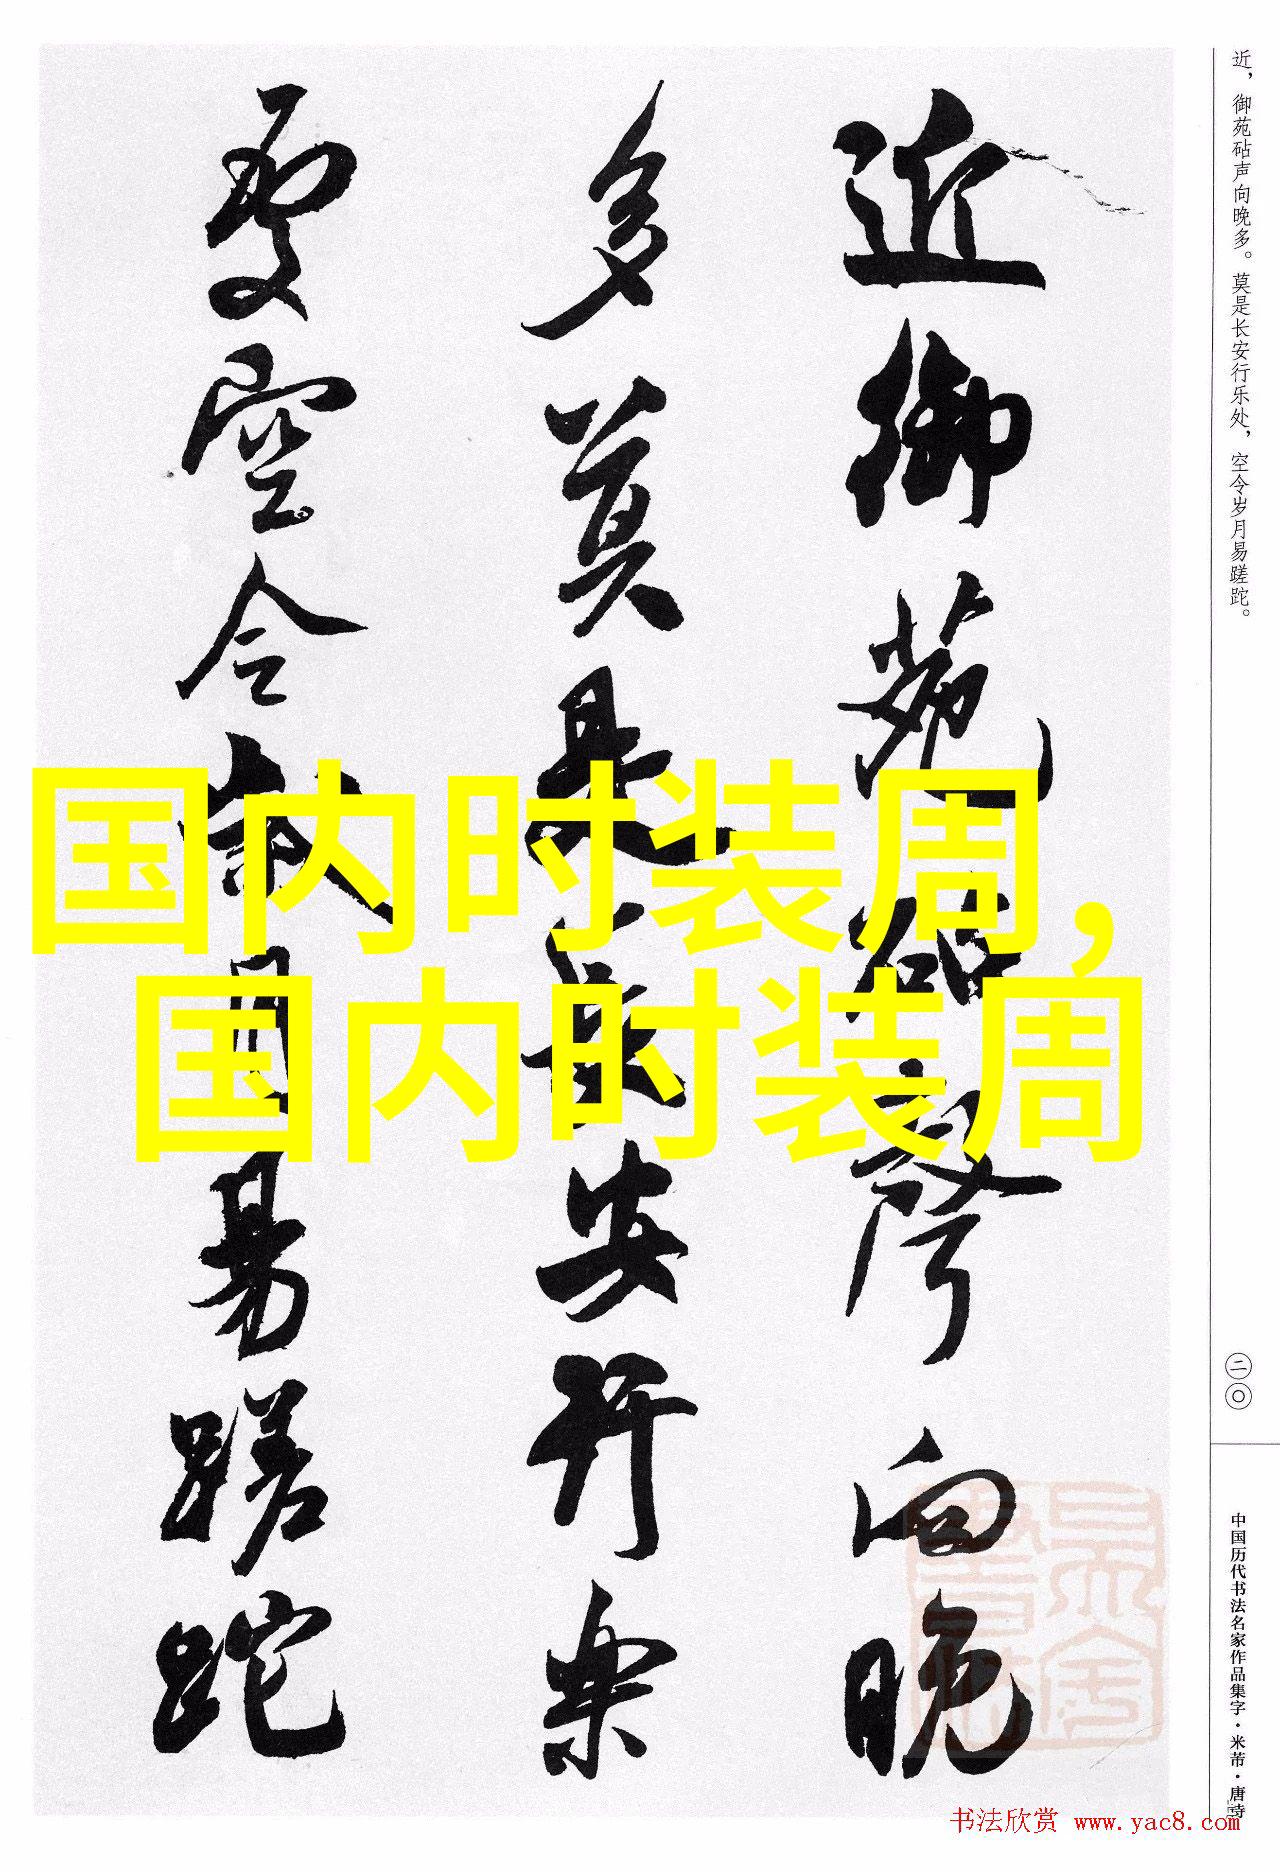 近御苑砧聲向晚
多莫是長安行樂
處空令歲月易蹉跎
国内时装周，
国内时装周
近，御苑砧声向晚多。莫是长安行乐处，空令岁月易蹉跎。
二〇
中国历代书法名家作品集字·米芾·唐诗
书法欣赏 www.yac8.com